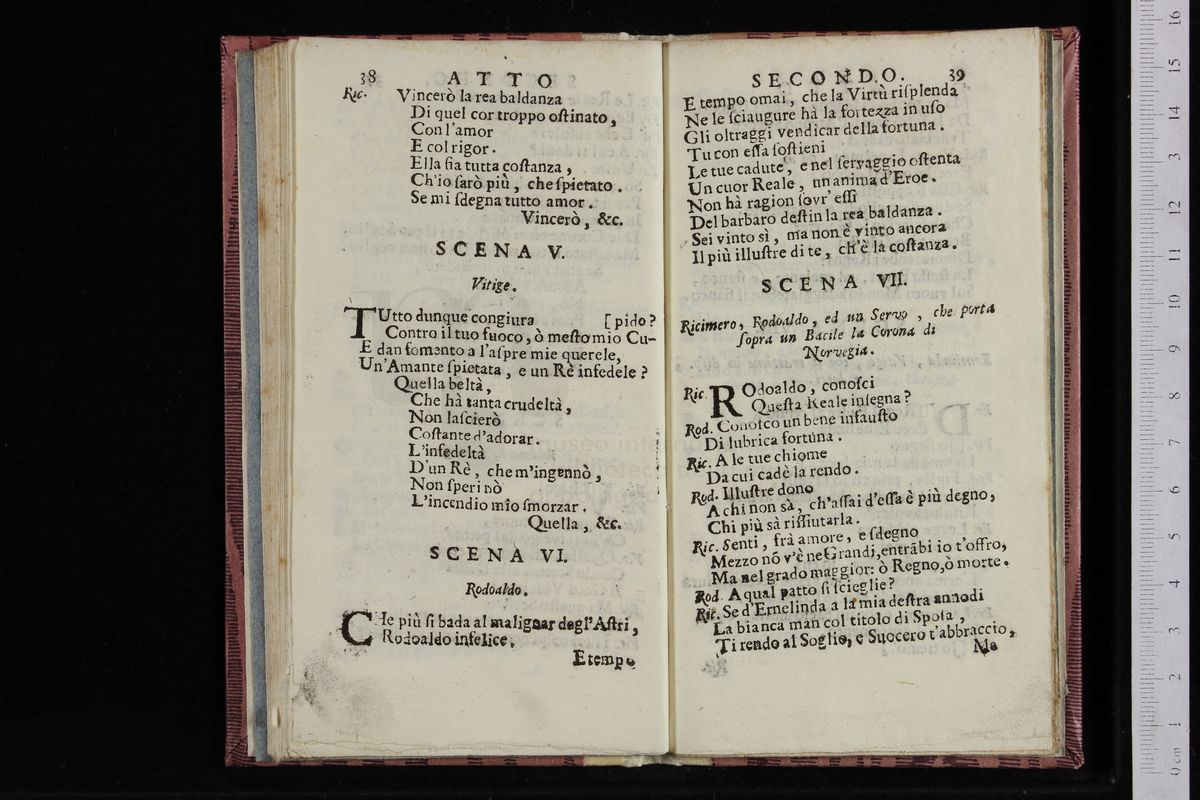 38 ATTO
Ric. Vincerò la rea baldanza
Di quel cor troppo oſtinato,
Con l'amor
E col rigor.
Ella ſia tutta coſtanza,
Ch'io ſarò più, che ſpietato.
Se mi ſdegna tutto amor.
Vincerò, &c.
SCENA V.
Vitige.
TUtto dunque congiura [pido?
Contro il tuo fuoco, ò meſto mio Cu-
E dan fomento a l'aſpre mie querele,
Un'Amante ſpietata, e un Rè infedele?
Quella beltà,
Che hà tanta crudeltà,
Non laſcierò
Coſtante d'adorar.
L'infedeltà
D'un Rè, che m'ingennò,
Non ſperi nò
L'incendio mio ſmorzar.
Quella, &c.
SCENA VI.
Rodoaldo.
CHe più ſi bada al malignar degl'Aſtri,
Rodoaldo infelice.
E tempo
SECONDO. 39
E tempo omai, che la Virtù riſplenda
Ne le ſciaugure hà la fortezza in uſo
Gli oltraggi vendicar della fortuna.
Tu con eſſa ſoſtieni
Le tue cadute, e nel ſervaggio oſtenta
Un cuor Reale, un anima d'Eroe.
Non hà ragion ſovr' eſſi
Del barbaro deſtin la rea baldanza.
Sei vinto sì, ma non è vinto ancora
Il più illuſtre di te, ch'è la coſtanza.
SCENA VII.
Ricimero, Rodoaldo, ed un Servo, che porta
ſopra un Bacile la Corona di
Norvegia.
Ric. ROdoaldo, conoſci
Queſta Reale inſegna?
Rod. Conoſco un bene infauſto
Di lubrica fortuna.
Ric. A le tue chiome
Da cui cadè la rendo.
Rod. Illuſtre dono
A chi non sà, ch'aſſai d'eſſa è più degno,
Chi più sà riffiutarla.
Ric. Senti, frà amore, e ſdegno
Mezzo nõ v'è ne Grandi, entrãbi io t'offro,
Ma nel grado maggior: ò Regno, ò morte.
Rod. A qual patto ſi ſcieglie?
Ric. Se d'Ernelinda a la mia deſtra annodi
La bianca man col titolo di Spoſa,
Ti rendo al Soglio, e Suocero t'abbraccio,
Ma